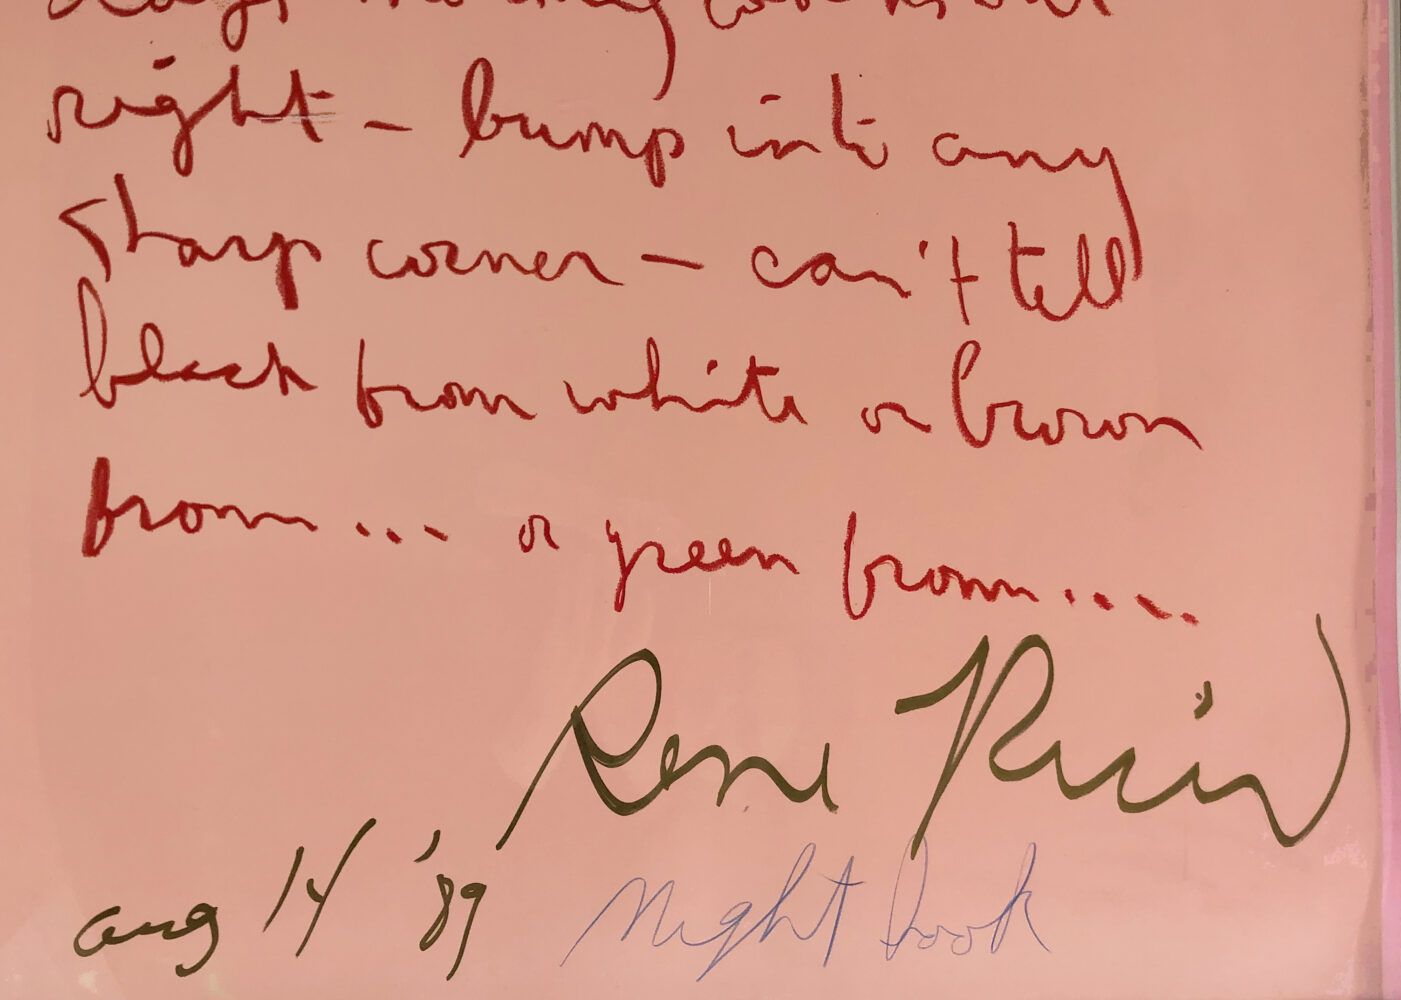 days nothing works out
right – bump into any
sharp corner – can't tell
black from white or brown
from... or green from....
Rene Ricard
aug 14 '89
Night book